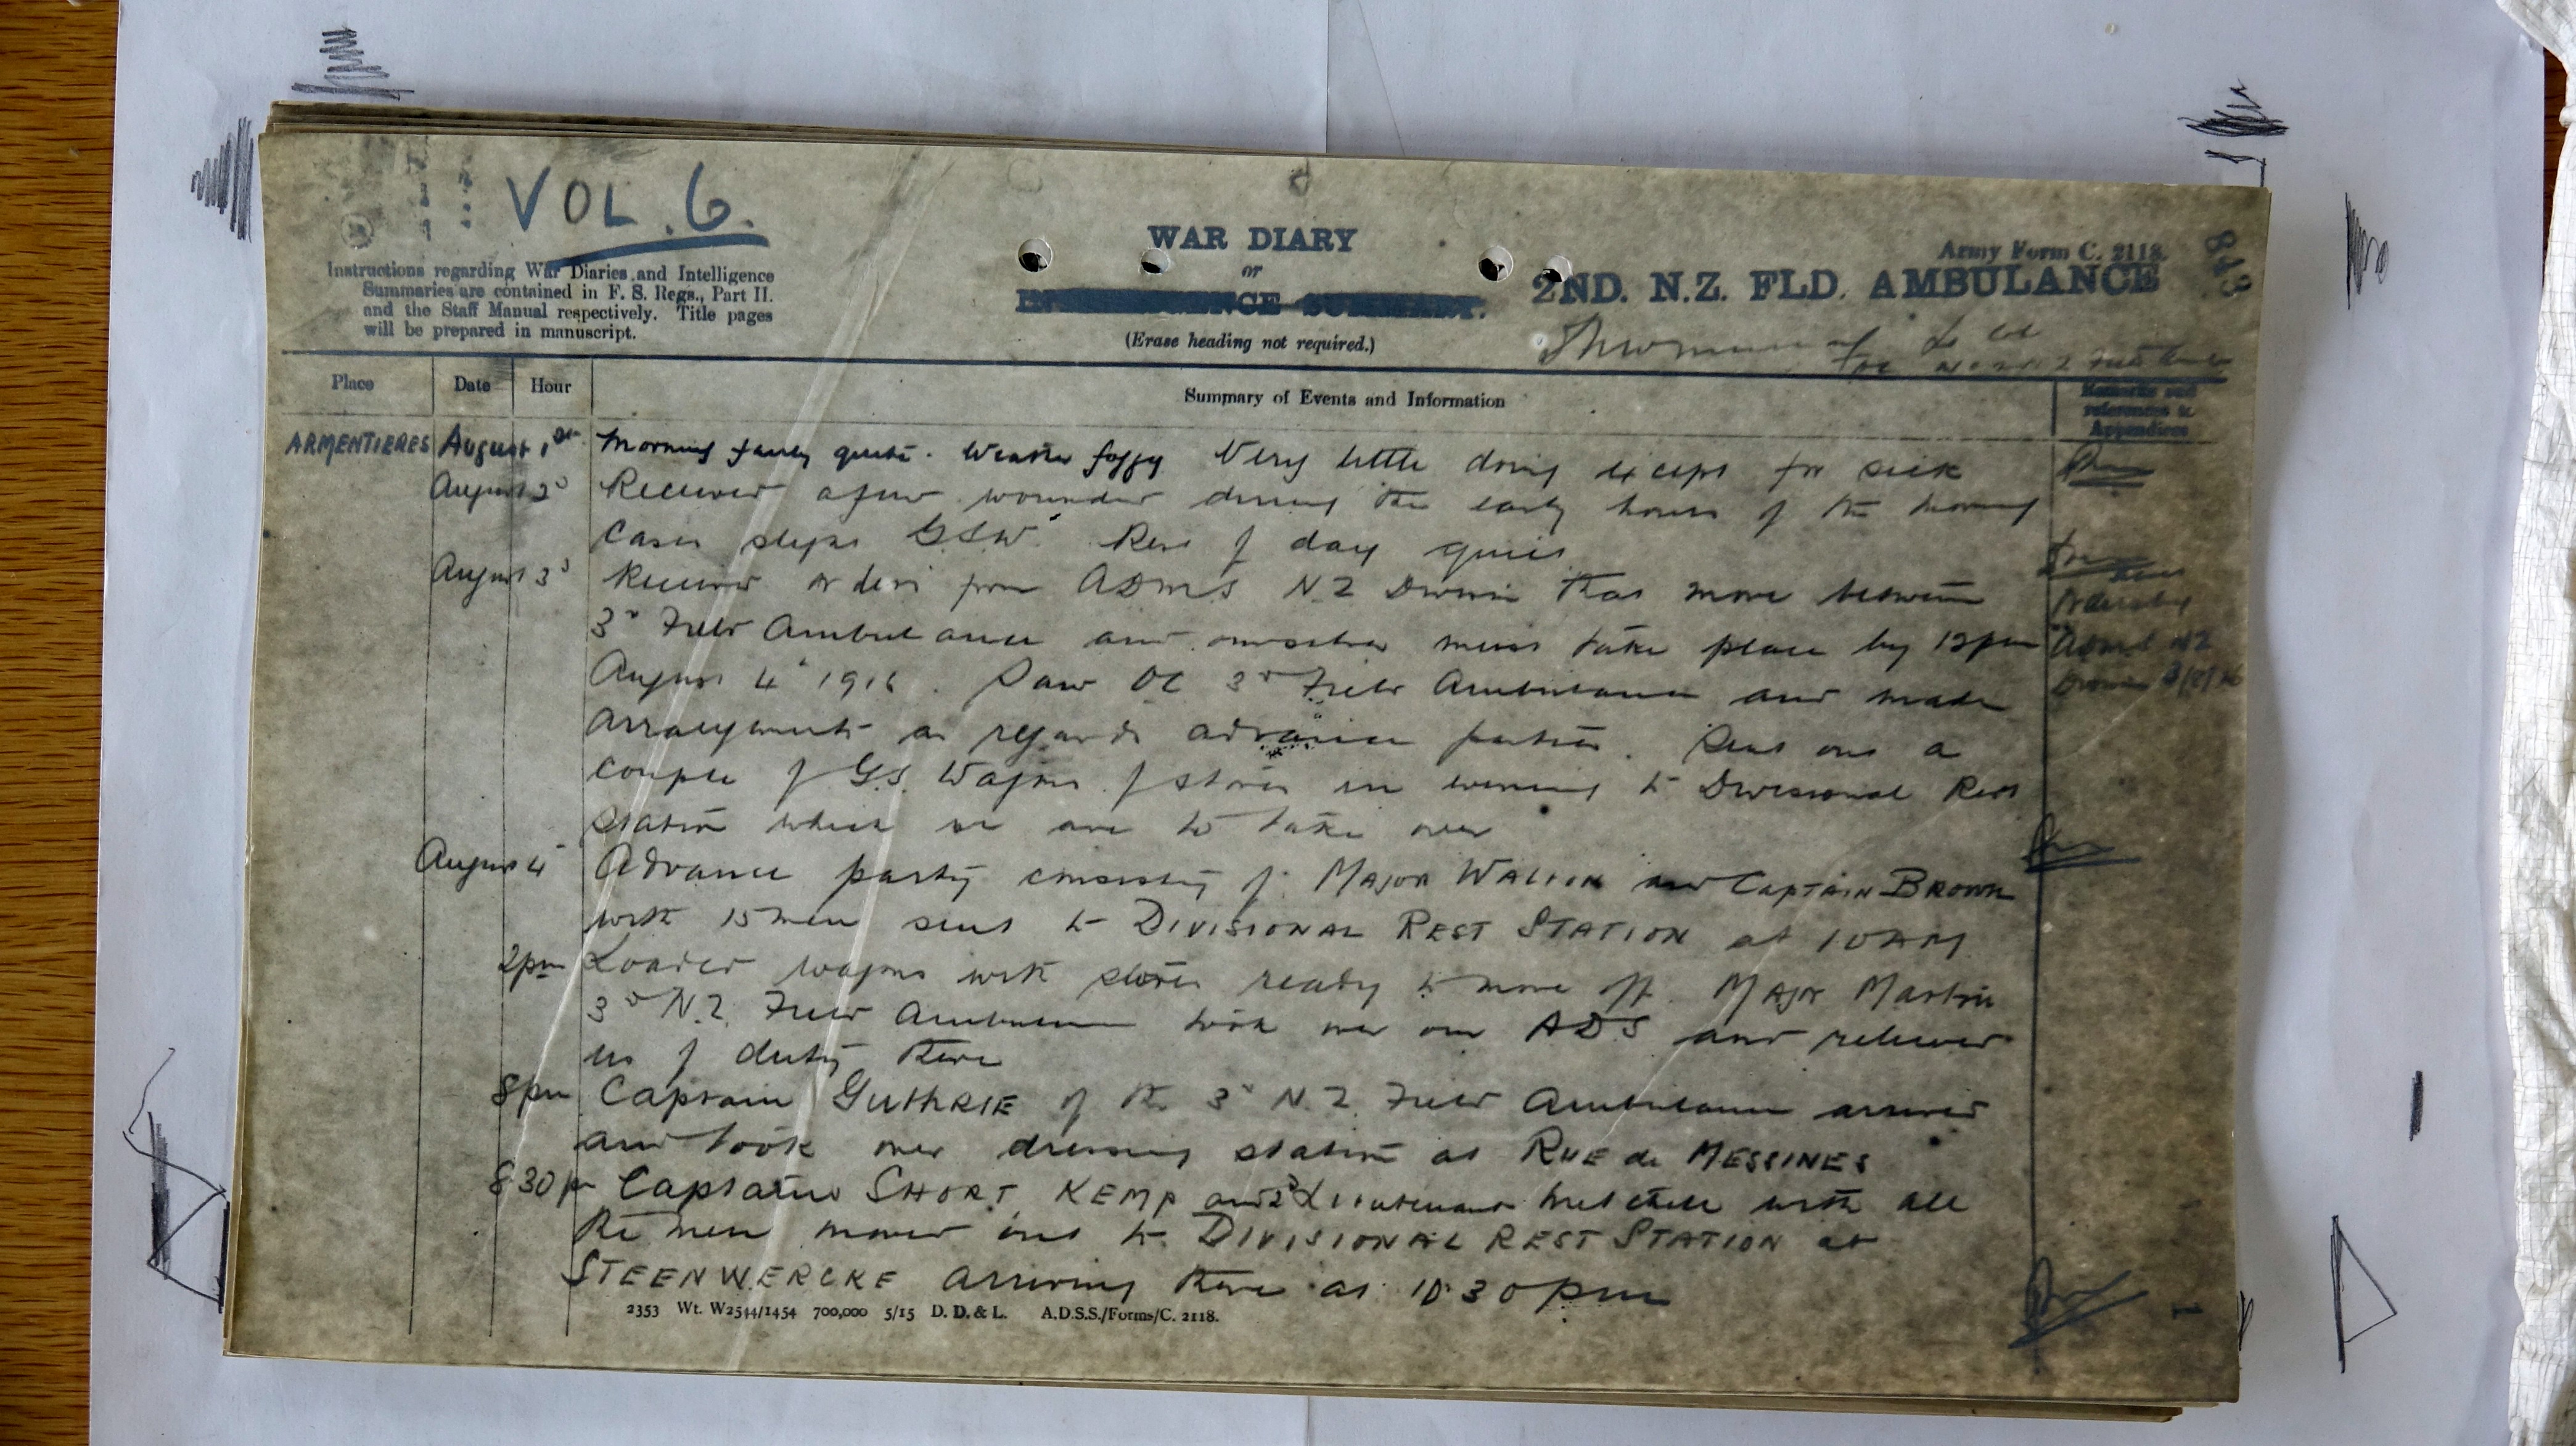 VOL. 6.
843
WAR DIARY
or
INTELLIGENCE SUMMARY.
(Erase heading not required.)
Army Form C. 2118.
2ND. N.Z. FLD. AMBULANCE
Instructions regarding War Diaries and Intelligence
Summaries are contained in F. S. Regs., Part II.
and the Staff Manual respectively. Title pages
will be prepared in manuscript.
Place Date Hour Summary of Events and Information Remarks and
references to
Appendices
ARMENTIERES August 1st Morning fairly quiet. Weather foggy Very little doing except for sick
August 2d Received a few wounded during the early hours of the morning
Cases slight G.S.W. Rest of day quiet
August 3d Received orders from ADMS N.Z Division that move between
3rd Field Ambulance and ourselves must take place by 12pm
August 4th 1916. Saw OC 3rd Field Ambulance and made
arrangements as regards advance parties. Sent out a
couple of G.S. Wagons of stores in evening to Divisional Rest
Station which we are to take over
Orders by
ADMS NZ
Division 3/8/16
August 4 Advance party consisting of MAJOR WALTON and CAPTAIN BROWN
with 15 men sent to DIVISIONAL REST STATION at 10AM
2pm Loaded wagons with stores ready to move off. MAJOR Martin
3rd N.Z. Field Ambulance took over our ADS and relieved
us of duty there
8pm Captain GUTHRIE of the 3rd N.Z. Field Ambulance arrived
and took over dressing station at RUE de MESSINES
8 30 pm Captains SHORT, KEMP and 2d Lieutenant Mitchell with all
the men moved out to DIVISIONAL REST STATION at
STEENWERCKE arriving there at 10.30 pm
2353 Wt. W2544/1454 700,000 5/15 D. D. & L. A.D.S.S./Forms/C. 2118.
1